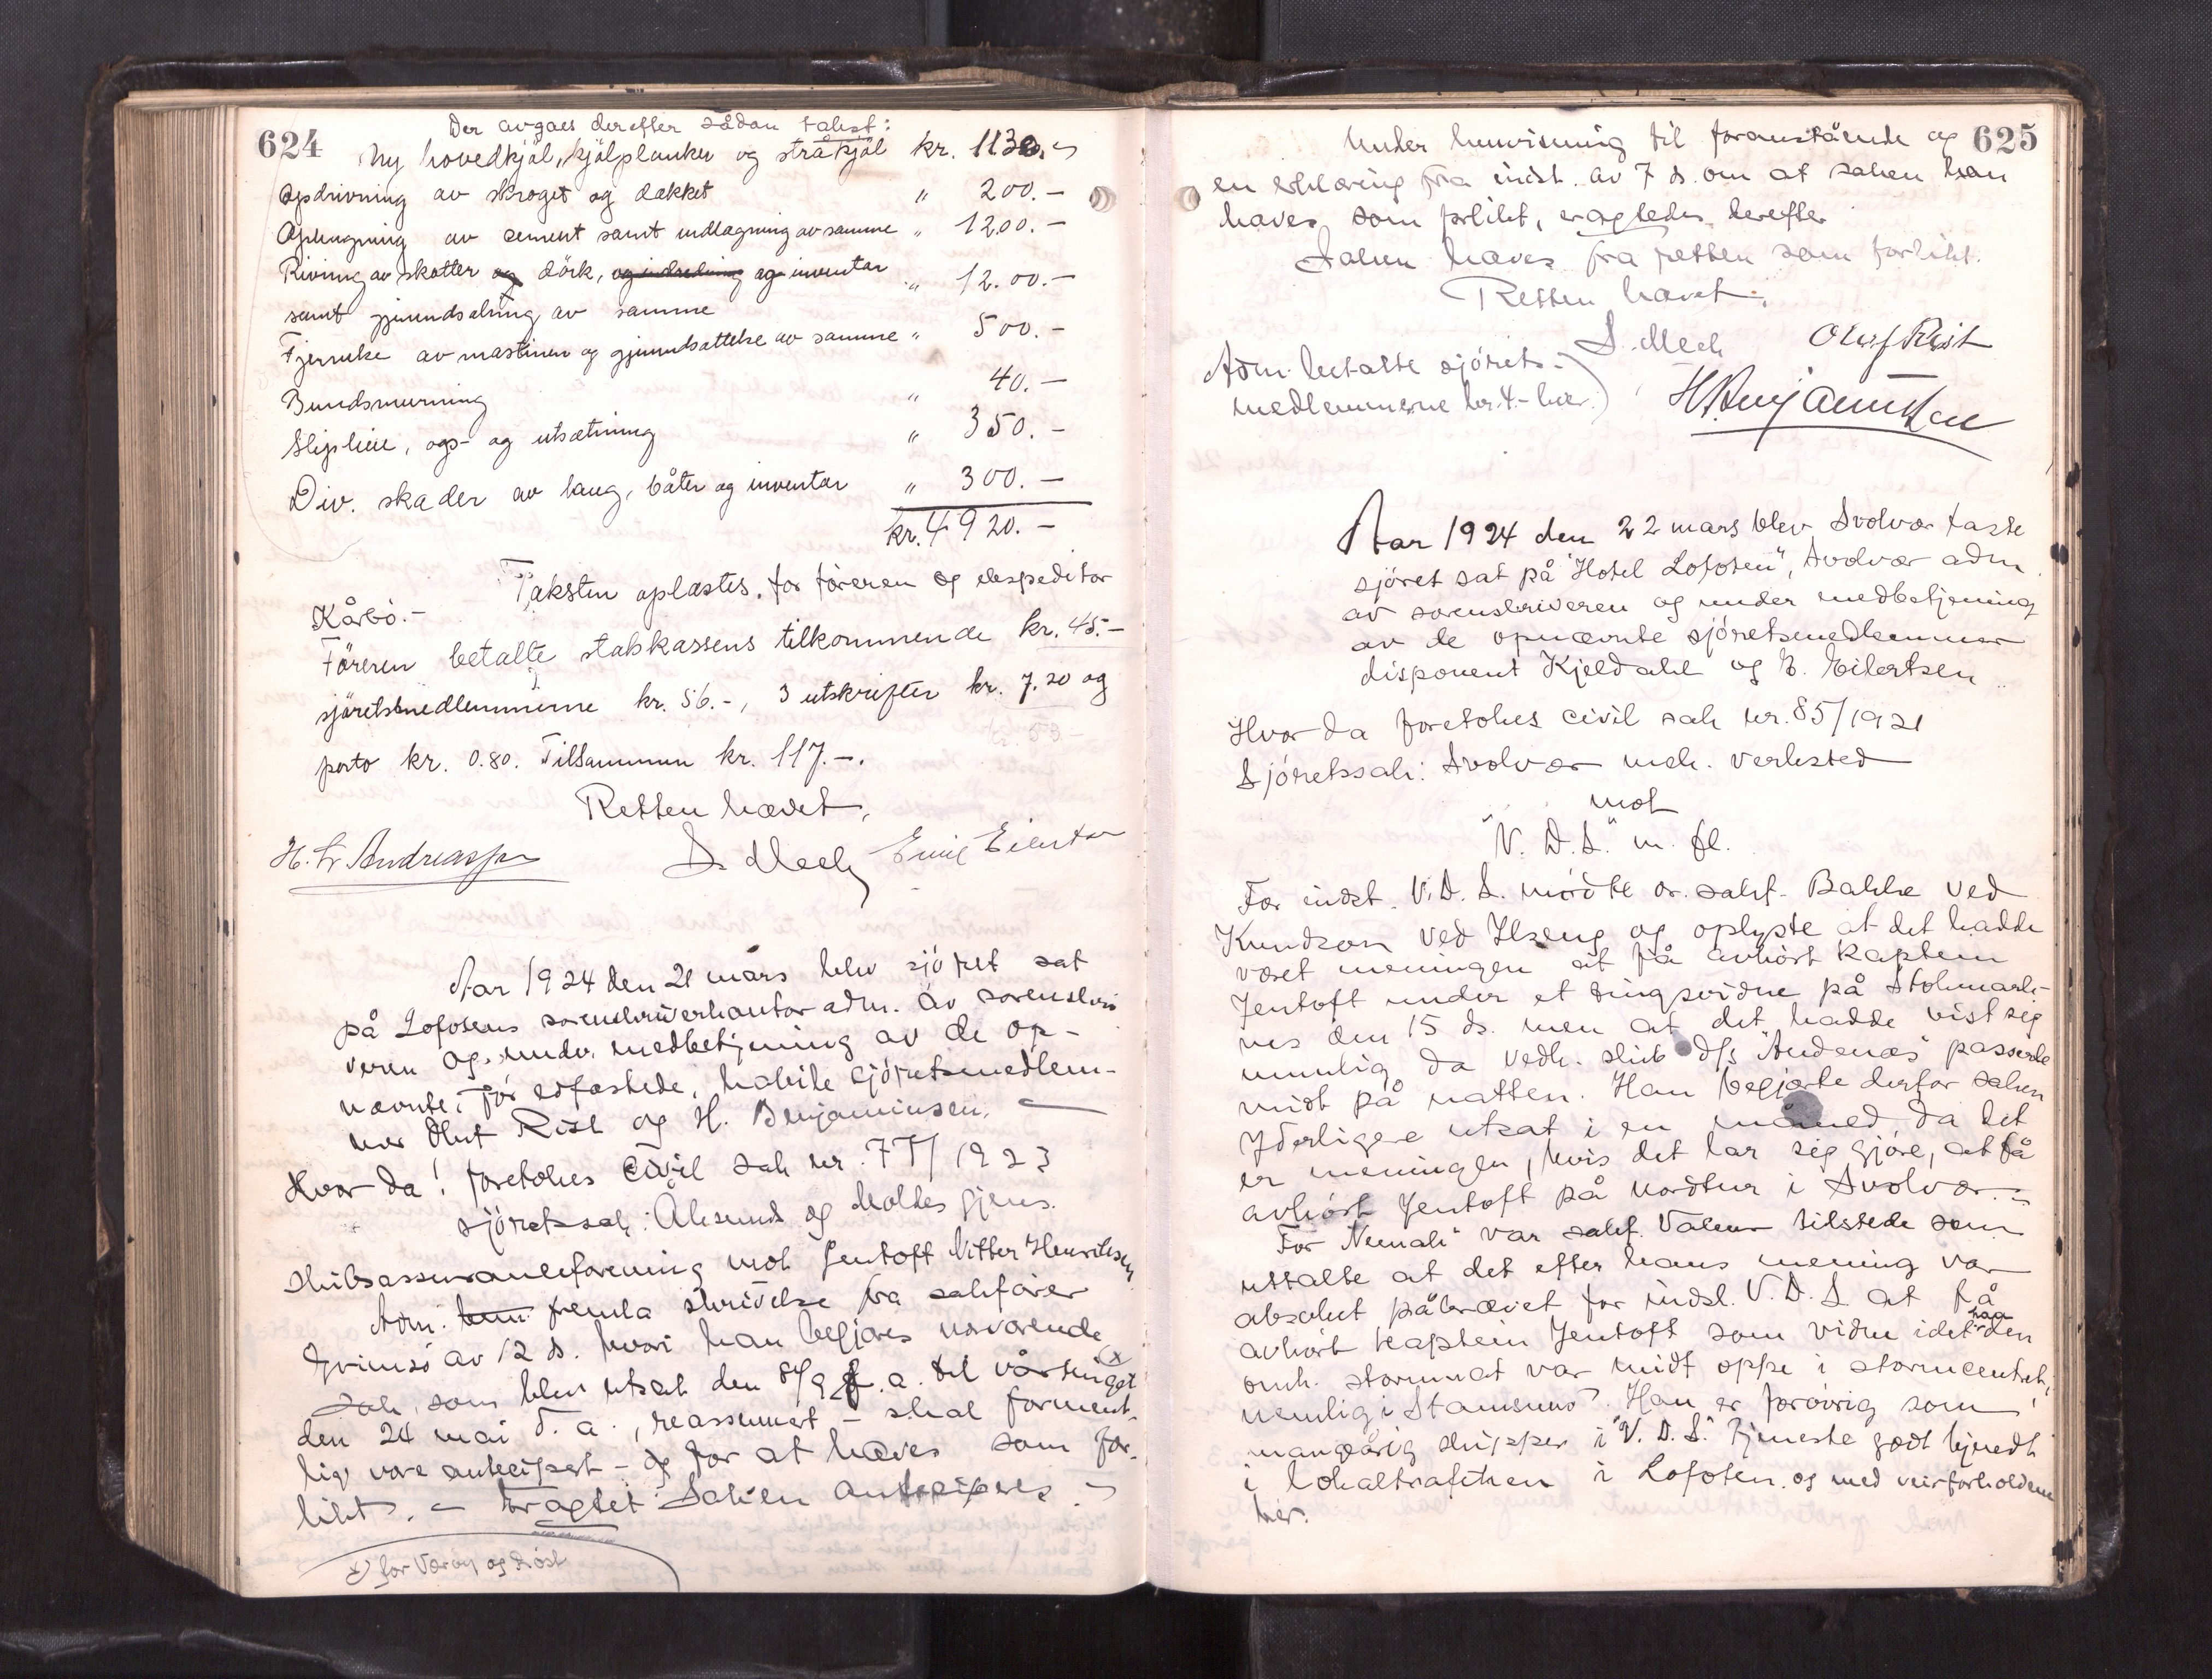 624
Der avgaes derefter sådan takst:
Ny hovedkjøl, kjølplanker og stråkjøl kr. 1130.-
Opdrivning av skroget og dækket " 200.-
Ophugning av cement samt indlægning av samme " 1200.-
Rivning av skotter og dörk, og indredning og inventar " 1200.-
samt gjenindsætning av samme
Fjernelse av maskinen og gjenindsættelse av samme " 500.-
Bundsmurning " 40.-
Slipleie, op- og utsætning " 350.-
Div. skader av laug, båter og inventar " 300.-
kr. 4920.-
Taksten oplæstes for föreren og ekspeditør
Kårbö.-
Föreren betalte statskassens tilkommende kr. 45.-
sjøretsmedlemmerne kr. 56.-, 3 utskrifter kr. 7.20 og
porto kr. 0.80. Tilsammen kr. 117.-.
Retten hævet.
H. Lr Andreassen S. Mech Emil Eilertsen
Aar 1924 den 21 mars blev sjöret sat
på Lofotens sorenskriverkontor adm. av sorenskri
veren og under medbetjening av de op-
nævnte, för edfæstede, habile sjöretsmedlem-
mer Oluf Rist og H. Benjaminsen.
Hvor da! foretokes civil sak nr. 77/1923
sjöretssak: Ålesund og Moldes gjens.
Skibsassuranceforening mot Jentoft Vitter Henriksen
Adm. fremla skrivelse fra sakförer
Grimsö av 12 ds. hvori han begjærer nærværende
sak, som blev utsat den 8/9 f.a. til vårtinget x)
den 24 mai d. a., reassumert - skal forment-
lig være antecipert - og for at hæves som for-
likt. - Eragtet: Saken anteciperes.
x) for Værøy og Röst
625
Under henvisning til foranstående og
en erklæring fra indst. av 7 ds. om at saken kan
hæves som forlikt, eragtedes derefter
Saken hæves fra retten som forlikt.
Retten hævet.
S. Mech Oluf Rist
Adm. betalte sjörets-
medlemmerne kr. 4.- hver. H. Benjaminsen
Aar 1924 den 22 mars blev Svolvær faste
sjöret sat på "Hotel Lofoten", Svolvær adm
av sorenskriveren og under medbetjening
av de opnævnte sjöretsmedlemmer
disponent Kjeldahl og E. Eilertsen
Hvor da foretokes civil sak nr. 85/1921
Sjöretssak: Svolvær mek. verksted
mot
"V. D. S." m. fl.
For indst. V. D. S. mödte or. sakf. Bakke ved
Knudsen ved Ilseng og oplyste at det hadde
været meningen at få avhört kaptein
Jentoft under et tingsvidne på Stokmark-
nes den 15 ds. men at det hadde vist sig
umulig da vedk. skib d/s "Andenæs" passerte
midt på natten. Han begjærte derfor saken
yderligere utsat i en måned, da det
er meningen, hvis det lar sig gjöre, at få
avhört Jentoft på nordtur i Svolvær.
For "Neenah" var sakf. Valeur tilstede som
uttalte at det efter hans mening var
absolut påkrævet for indst. V. D. S. at få
avhört kaptein Jentoft som vidne idet han den
omh. stormnat var midt oppe i stormcentret,
nemlig i Stamsund. Han er forövrig som
mangeårig skipper i "V. D. S." tjeneste godt kjendt
i lokaltrafikken i Lofoten og med veirforholdene
her.